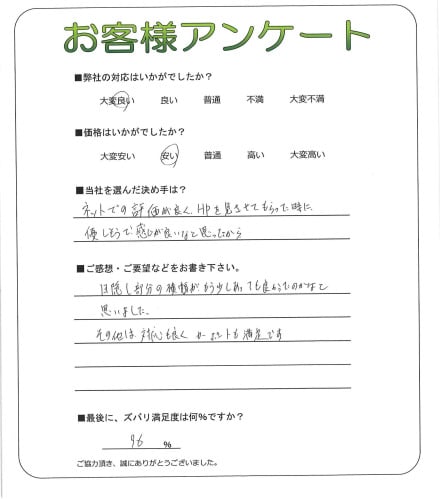 お客様アンケート
■弊社の対応はいかがでしたか?
大変良い 良い 普通 不満 大変不満
■価格はいかがでしたか?
大変安い 安い 普通 高い 大変高い
■当社を選んだ決め手は?
ネットでの評価が良く、HPを見させてもらった時に、
優しそうで感じが良いなと思ったから
■ご感想・ご要望などをお書き下さい。
目隠し部分の種類がもう少しあっても良かったのかなと
思いました。
その他は対応も良く カーポートも満足です
■最後に、ズバリ満足度は何%ですか?
96 %
ご協力頂き、誠にありがとうございました。